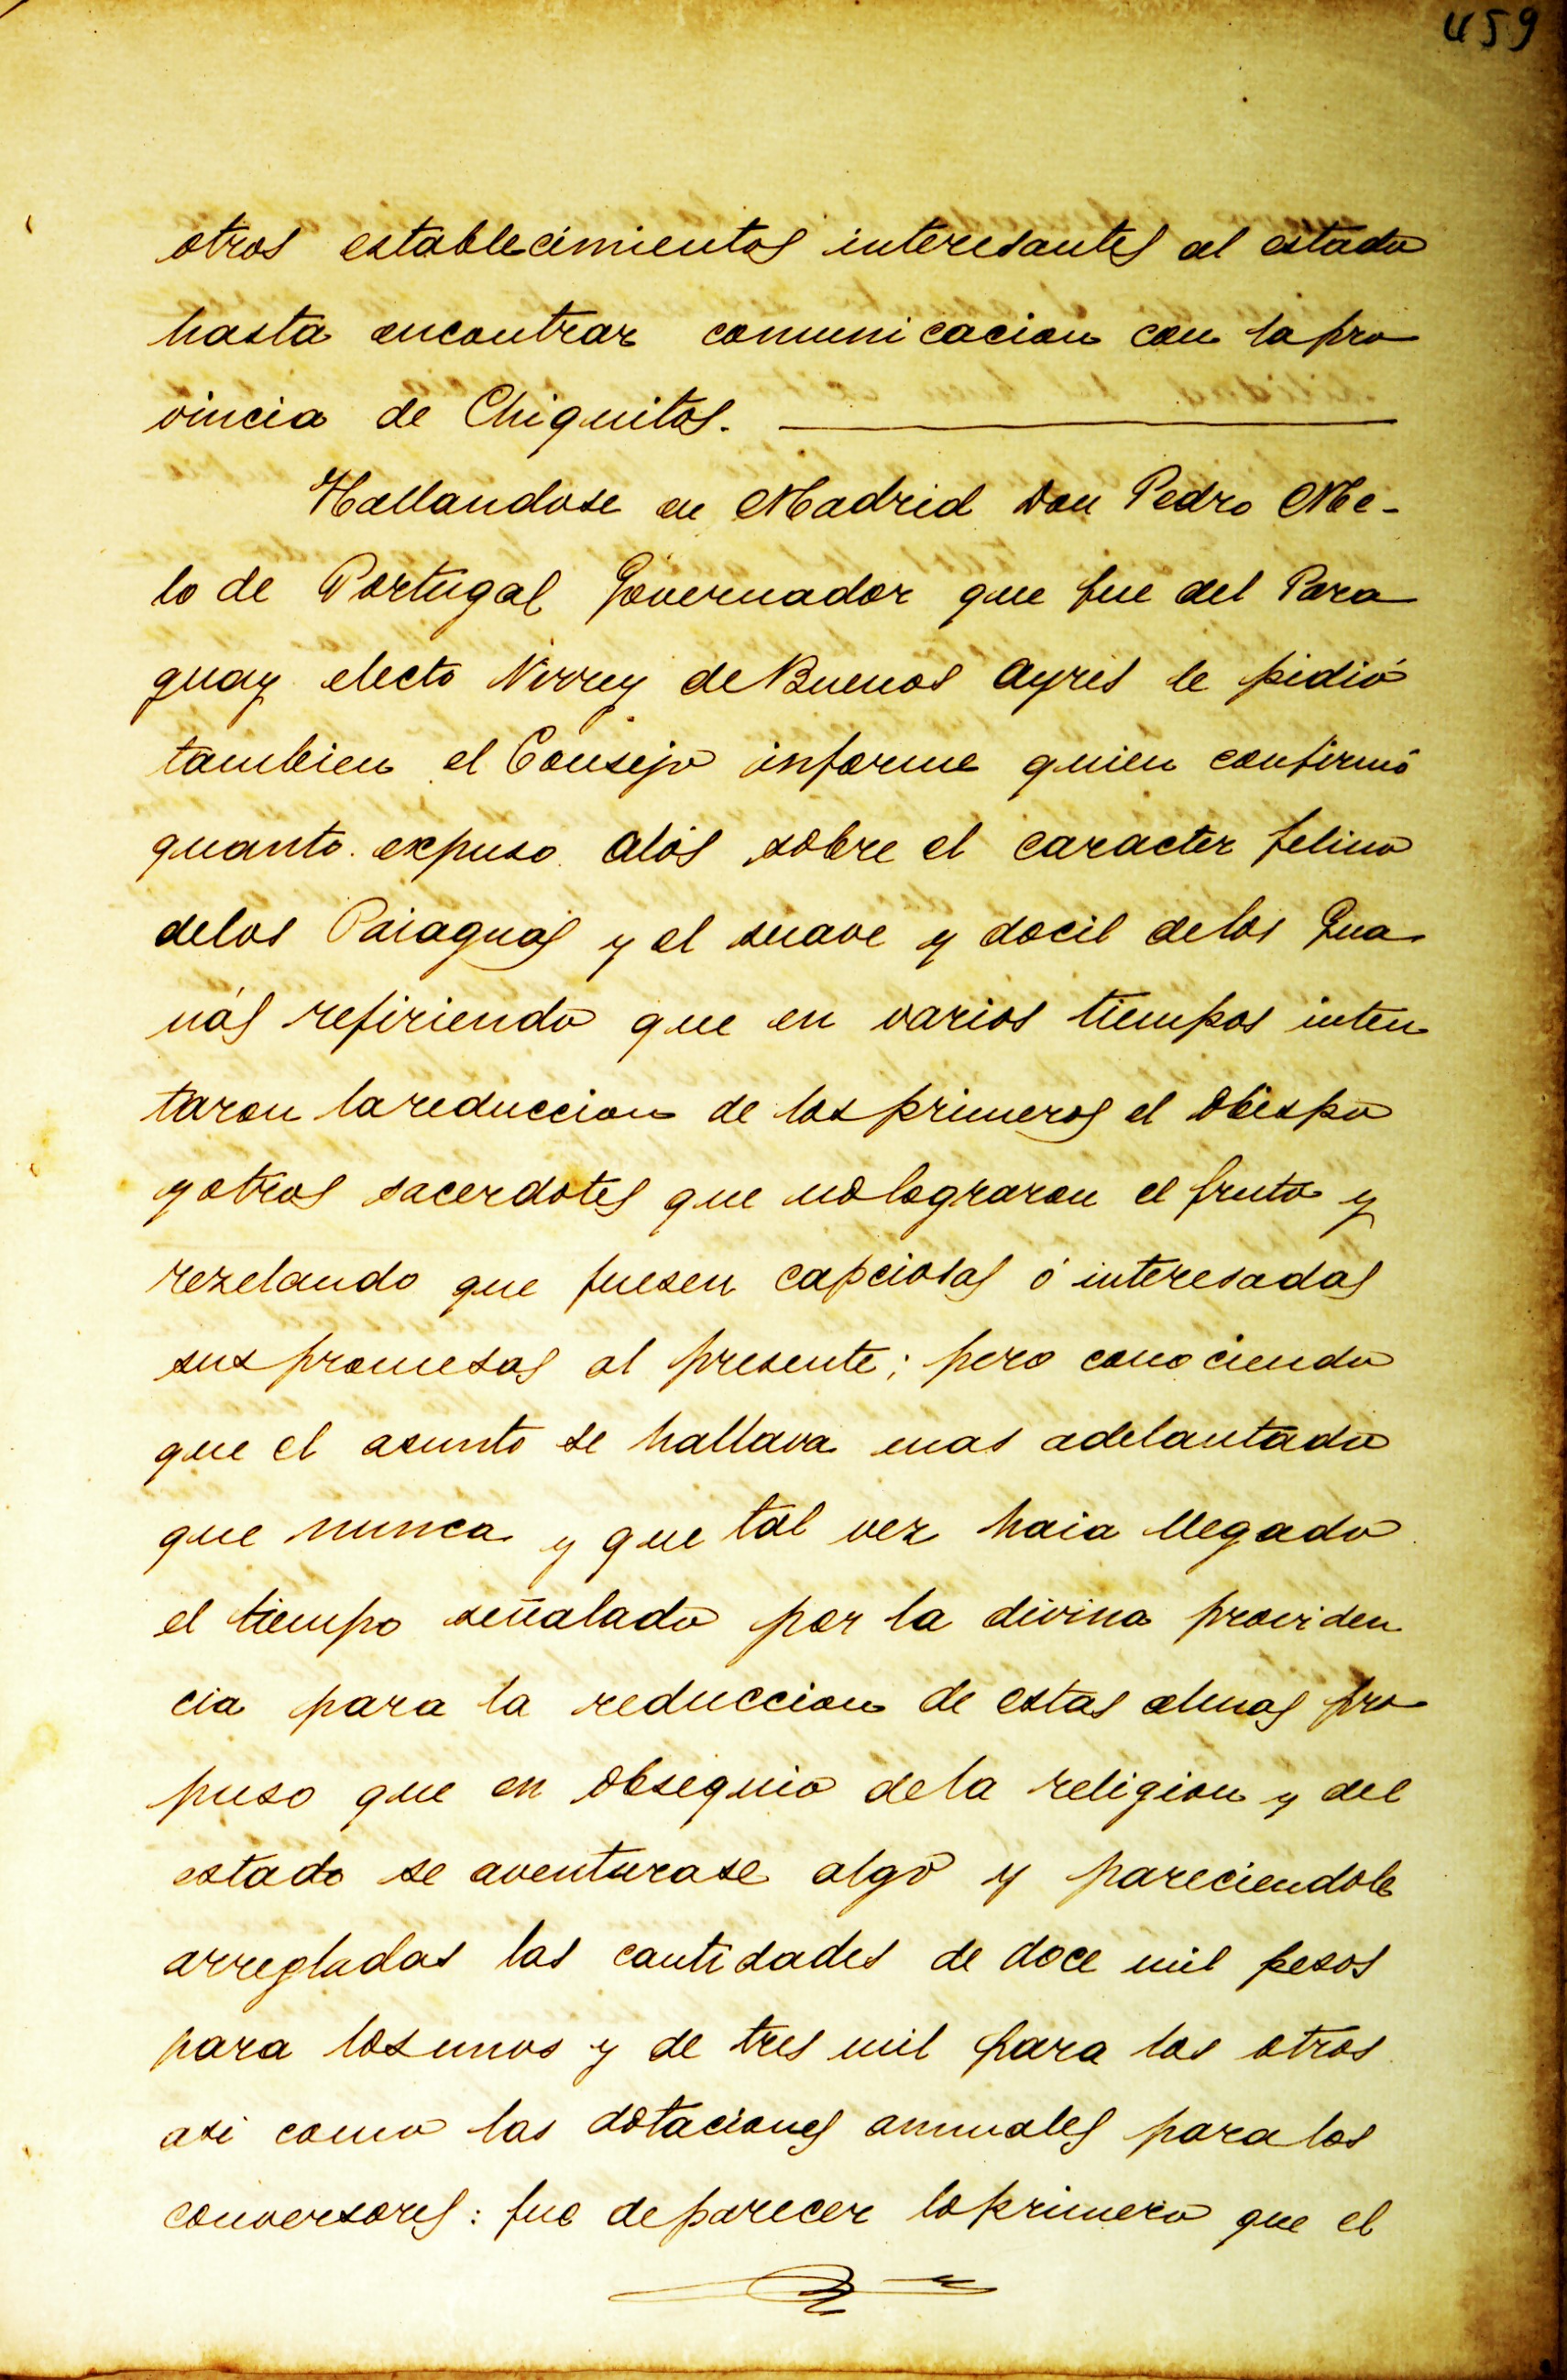 459
otros establecimientos interesantes al estado
hasta encontrar comunicacion con la pro
vincia de Chiquitos.
Hallandose en Madrid Don Pedro Me-
lo de Portugal Governador que fue del Para
guay electo Virrey de Buenos Ayres le pidió
tambien el Consejo informe quien confirmó
quanto expuso Alós sobre el caracter felino
delos Paiaguas y el suave y docil delos Gua
nás refiriendo que en varios tiempos inten
taron lareduccion de losprimeros el Obispo
yotros sacerdotes que nolograron el fruto y
rezelando que fuesen capciosas ó interesadas
suspromesas al presente; pero conociendo
que el asunto se hallava mas adelantado
que nunca y que tal vez haia llegado
el tiempo señalado por la divina providen
cia para la reduccion de estas almas pro
puso que en obsequio dela religion y del
estado se aventurase algo y pareciendole
arregladas las cantidades de doce mil pesos
para losunos y de tres mil para los otros
asi como las dotaciones annuales para los
conversores: fue deparecer loprimero que el